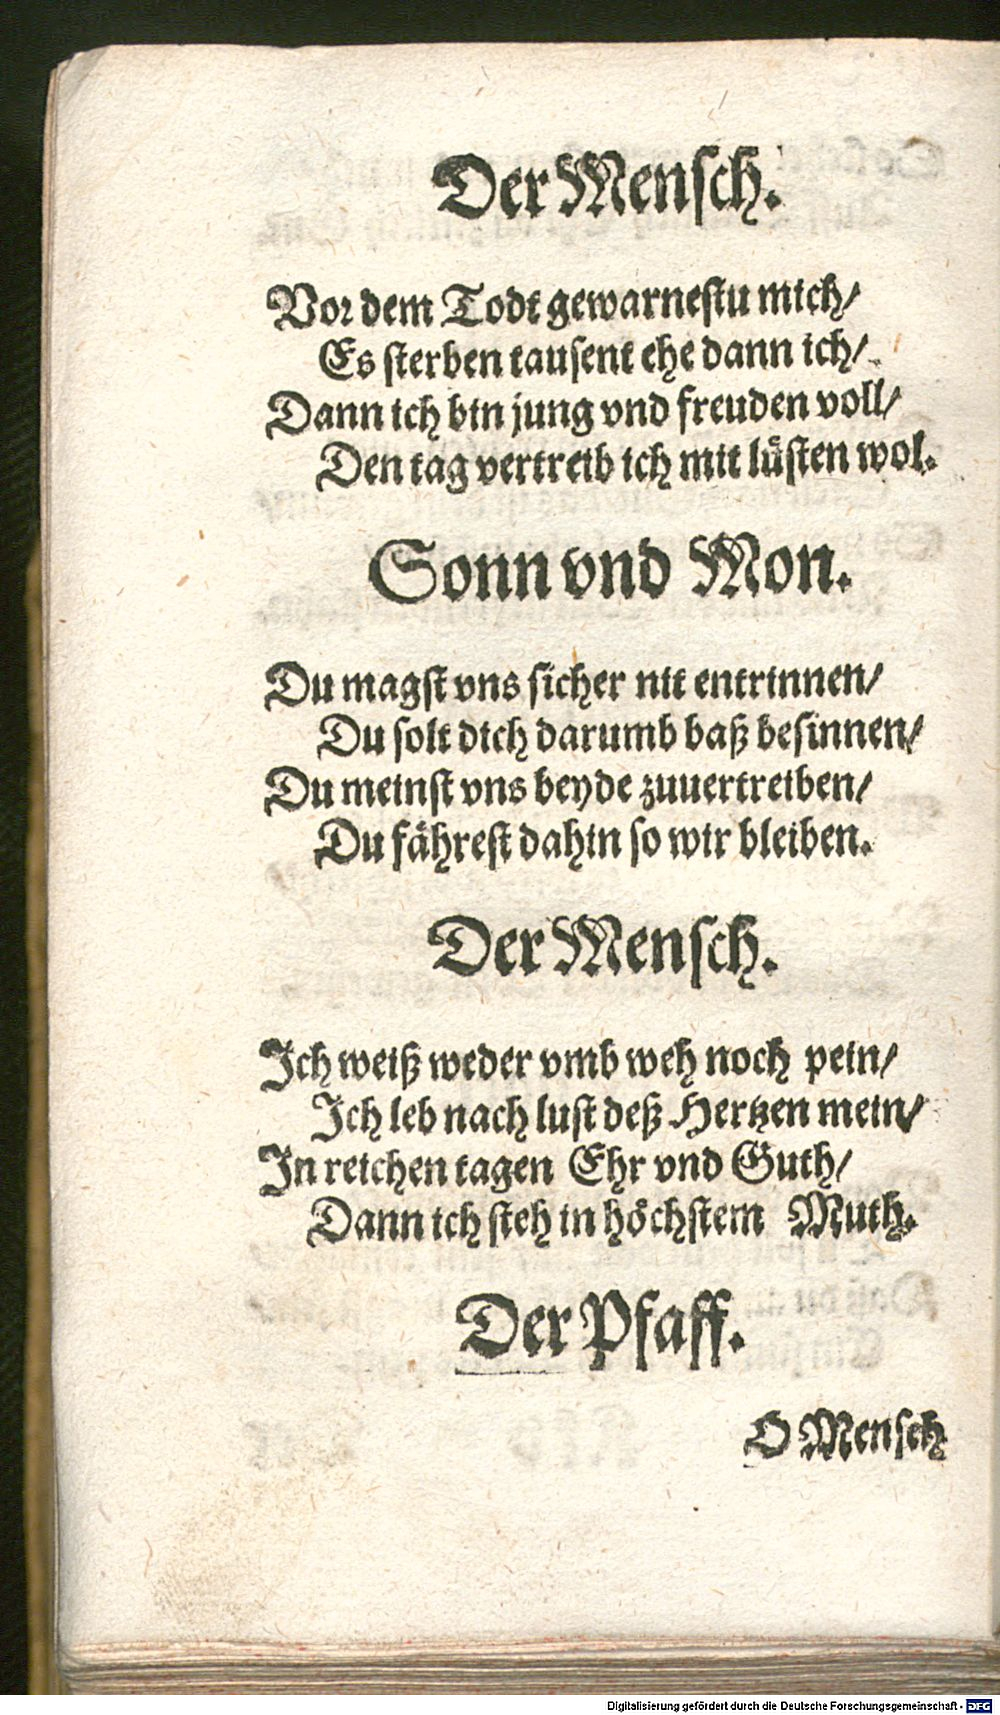 Der Menſch.
Vor dem Todt gewarneſtu mich/
Es ſterben tauſent ehe dann ich/
Dann ich bin jung vnd freuden voll/
Den tag vertreib ich mit lüſten wol.
Sonn vnd Mon.
Du magſt vns ſicher nit entrinnen/
Du ſolt dich darumb baß beſinnen/
Du meinſt vns beyde zuuertreiben/
Du fähreſt dahin ſo wir bleiben.
Der Menſch.
Ich weiß weder vmb weh noch pein/
Ich leb nach luſt deß Hertzen mein/
In reichen tagen Ehr vnd Guth/
Dann ich ſteh in höchſtem Muth.
Der Pfaff.
O Menſch
Digitalisierung gefördert durch die Deutsche Forschungsgemeinschaft - DFG